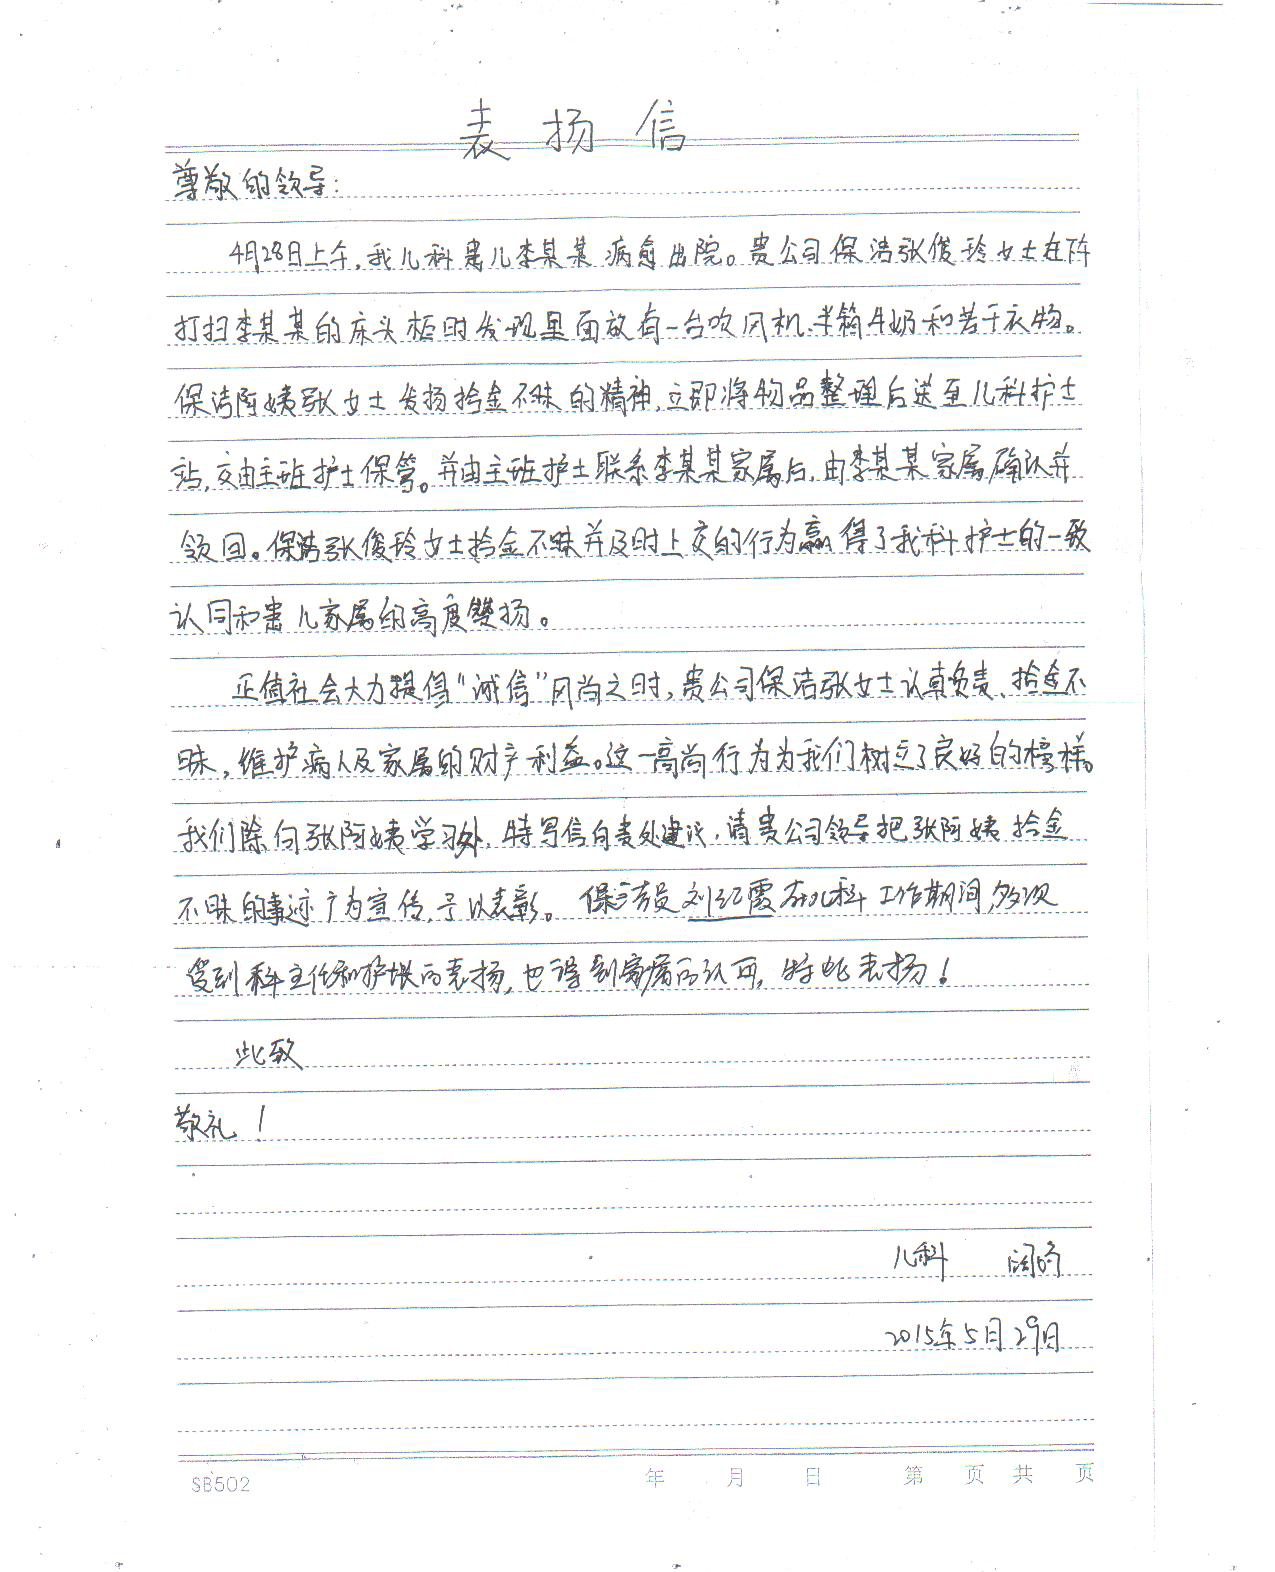 表扬信
尊敬的领导：
4月28日上午，我儿科患儿李某某病愈出院。贵公司保洁张俊玲女士在
打扫李某某的床头柜时发现里面放有一台吹风机、半箱牛奶和若干衣物。
保洁阿姨张女士发扬拾金不昧的精神，立即将物品整理后送至儿科护士
站，交由主班护士保管。并由主班护士联系李某某家属后，由李某某家属确认并
领回。保洁张俊玲女士拾金不昧并及时上交的行为赢得了我科护士的一致
认同和患儿家属的高度赞扬。
正值社会大力提倡“诚信”风尚之时，贵公司保洁张女士认真负责、拾金不
昧，维护病人及家属的财产利益。这一高尚行为为我们树立了良好的榜样。
我们除向张阿姨学习外，特写信向贵处建议，请贵公司领导把张阿姨拾金
不昧的事迹广为宣传，予以表彰。保洁员刘红霞在儿科工作期间多次
受到科主任和护士长的表扬，也得到家属的认可，特此表扬！
此致
敬礼！
儿科
2015年5月29日
SB502 年 月 日 第 页 共 页